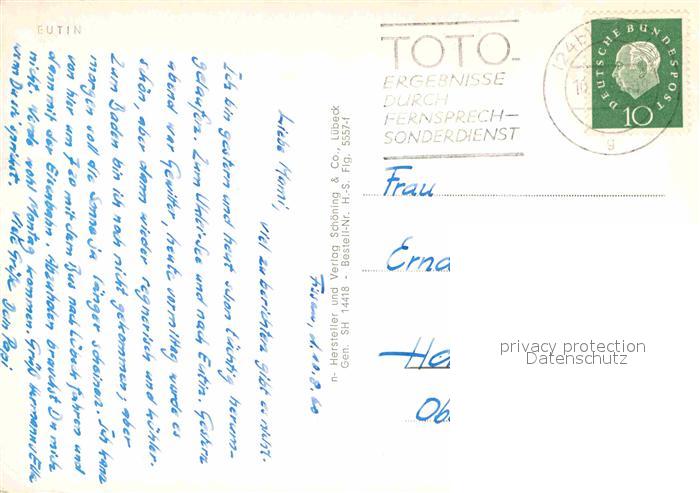 EUTIN
TOTO-
ERGEBNISSE
DURCH
FERNSPRECH-
SONDERDIENST
DEUTSCHE BUNDESPOST
10
g
Frau
Erna
Ob
privacy protection
Datenschutz
n- Hersteller und Verlag Schöning & Co., Lübeck
Gen. SH 14418 - Bestell-Nr. H.-S. Flg. 5557-f
d. 10.8.60
Liebe Mumi,
viel zu berichten gibt es nicht.
Ich bin gestern und heut schon tüchtig herum-
gelaufen. Zum Ukleisee und nach Eutin. Gestern
abend war Gewitter, heute vormittag wurde es
schön, aber dann wieder regnerisch und kühler.
Zum Baden bin ich noch nicht gekommen, aber
morgen soll die Sonne ja länger scheinen. Ich kann
von hier um 7 20 mit dem Bus nach Lübeck fahren und
dann mit der Eisenbahn. Abzuholen brauchst Du mich
nicht, werde wohl Montag kommen. Grüß Hermann u. Elli
wenn Du sie sprichst. Viele Grüße Dein Papi